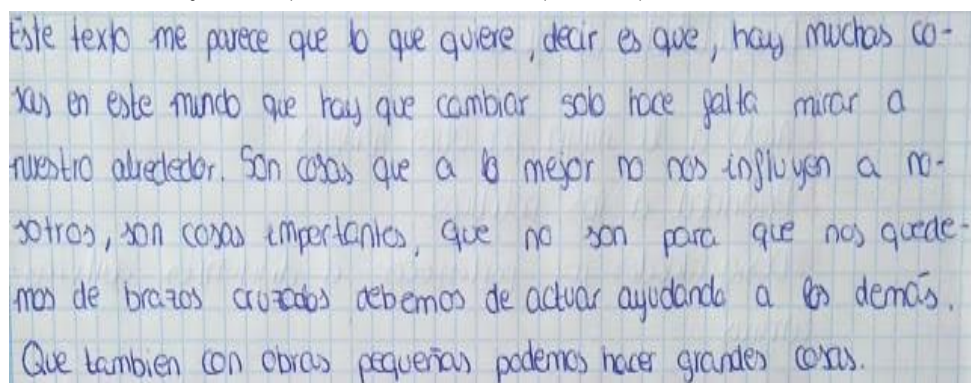 Este texto me parece que lo que quiere, decir es que, hay muchas co-
sas en este mundo que hay que cambiar solo hace falta mirar a
nuestro alrededor. Son cosas que a lo mejor no nos influyen a no-
sotros, son cosas importantes, que no son para que nos quede-
mos de brazos cruzados debemos de actuar ayudando a los demás.
Que tambien con obras pequeñas podemos hacer grandes cosas.